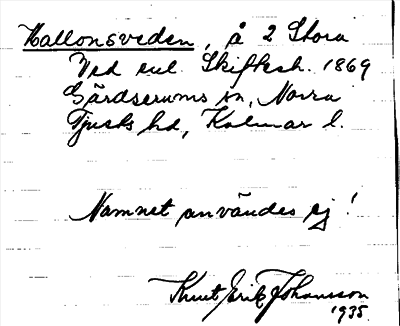 Hallonsveden, å 2 Stora
Ved enl. Skiftesh. 1869
Gärdserums sn, Norra
Tjusts hd, Kalmar l.
Namnet användes ej!
Knut Erik Johansson
1935.